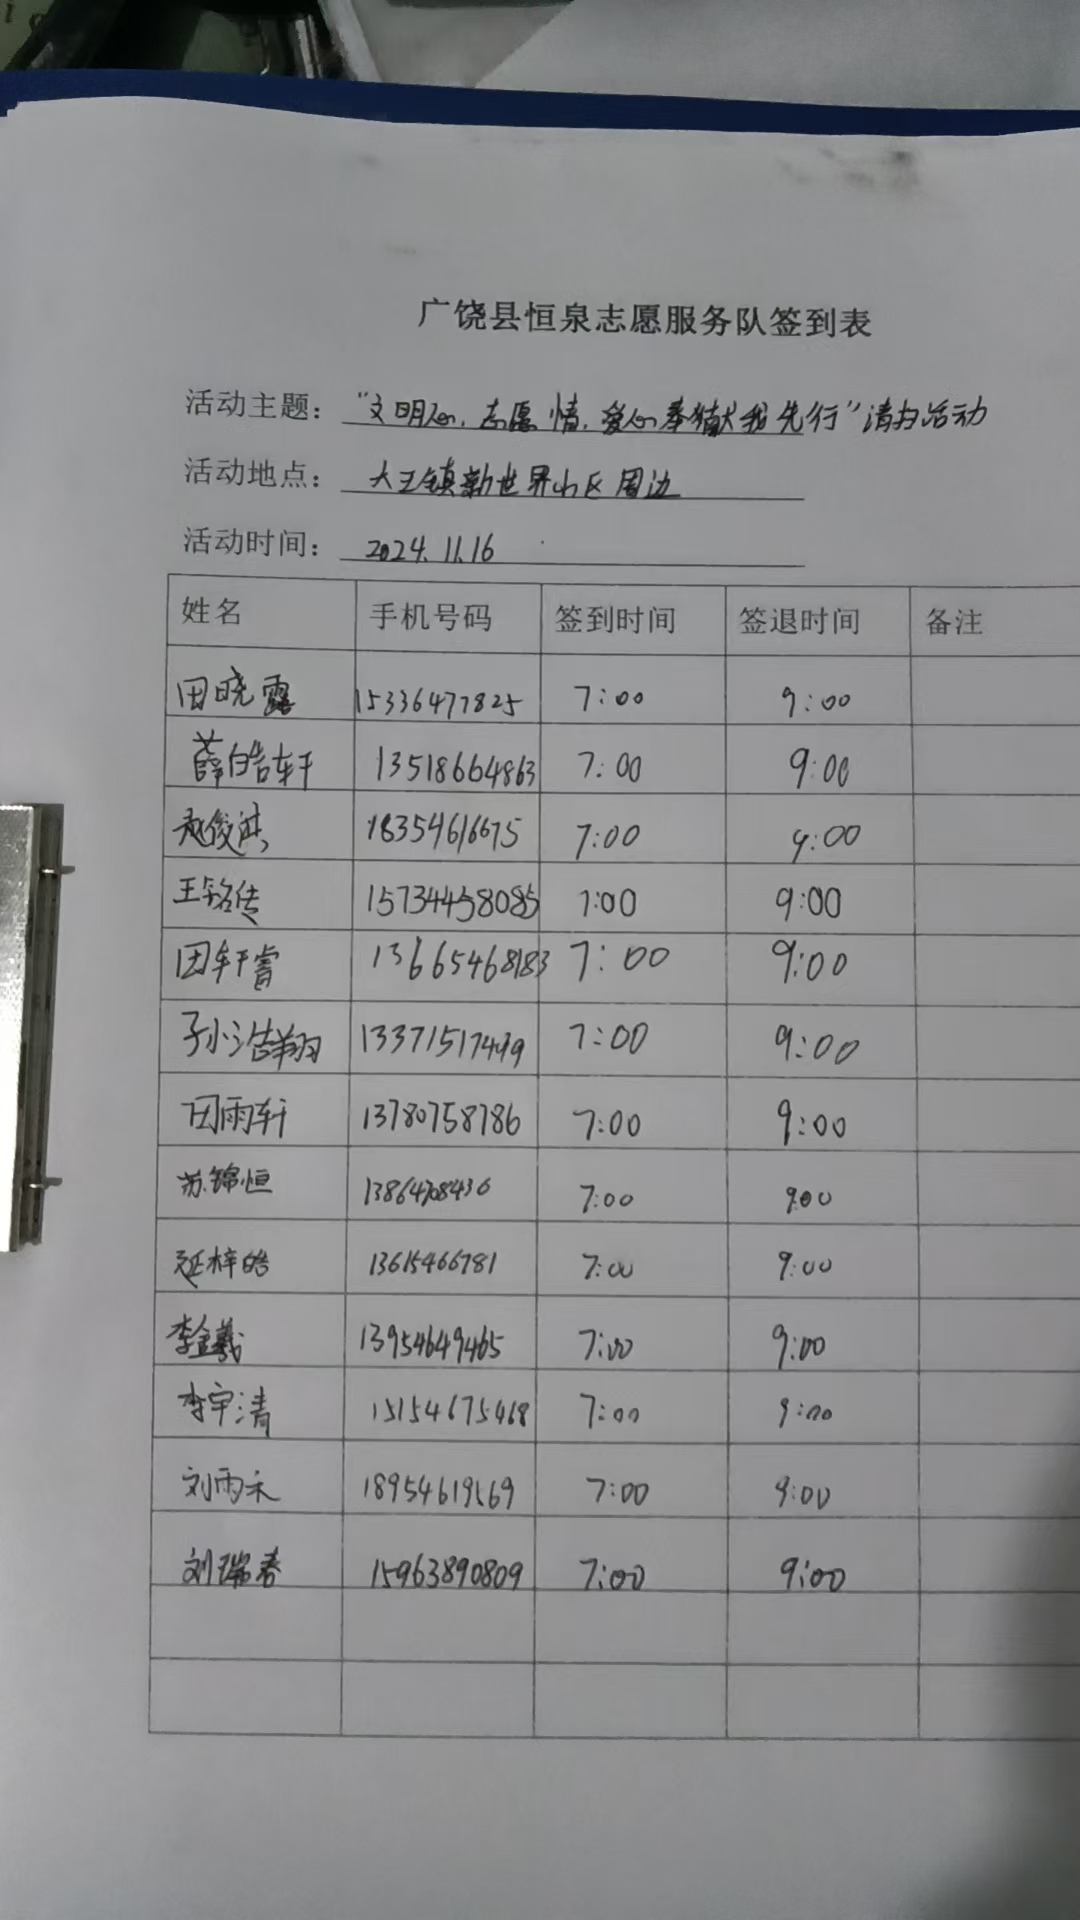 广饶县恒泉志愿服务队签到表
活动主题："文明心,志愿情,爱心奉献我先行"清扫活动
活动地点：大王镇新世界小区周边
活动时间：2024.11.16
姓名 手机号码 签到时间 签退时间 备注
田晓露 15336477825 7:00 9:00
薛皓轩 13518664863 7:00 9:00
赵俊淇 18354616675 7:00 9:00
王铭传 15734458085 7:00 9:00
田轩睿 13665468183 7:00 9:00
孙浩翔 13371517499 7:00 9:00
田雨轩 13780758786 7:00 9:00
苏锦恒 7:00 9:00
延梓皓 13615466781 7:00 9:00
李金羲 13954649465 7:00 9:00
李宇清 15154675468 7:00 9:00
刘雨禾 18954619569 7:00 9:00
刘瑞春 15963890809 7:00 9:00